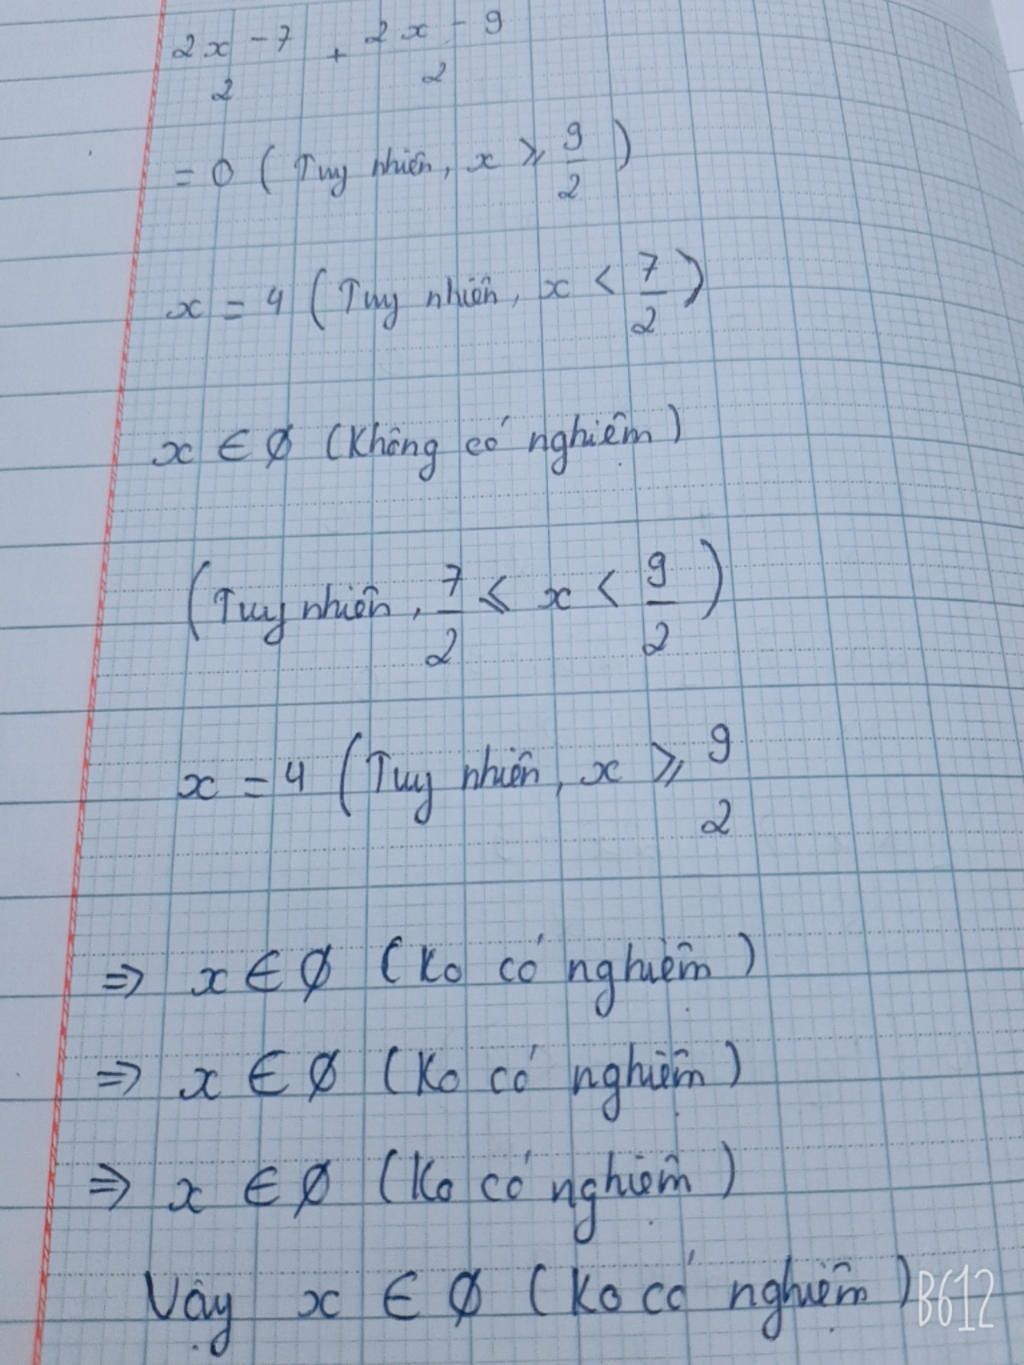 2x - 7 + 2x - 9
2 2
= 0 (Tuy nhiên, x ⩾ 9/2)
x = 4 (Tuy nhiên, x < 7/2)
x ∈ ∅ (Không có nghiệm)
(Tuy nhiên, 7/2 ⩽ x < 9/2)
x = 4 (Tuy nhiên, x ⩾ 9/2
⇒ x ∈ ∅ (Ko có nghiệm)
⇒ x ∈ ∅ (Ko có nghiệm)
⇒ x ∈ ∅ (Ko có nghiệm)
Vậy x ∈ ∅ (Ko có nghiệm)
B612